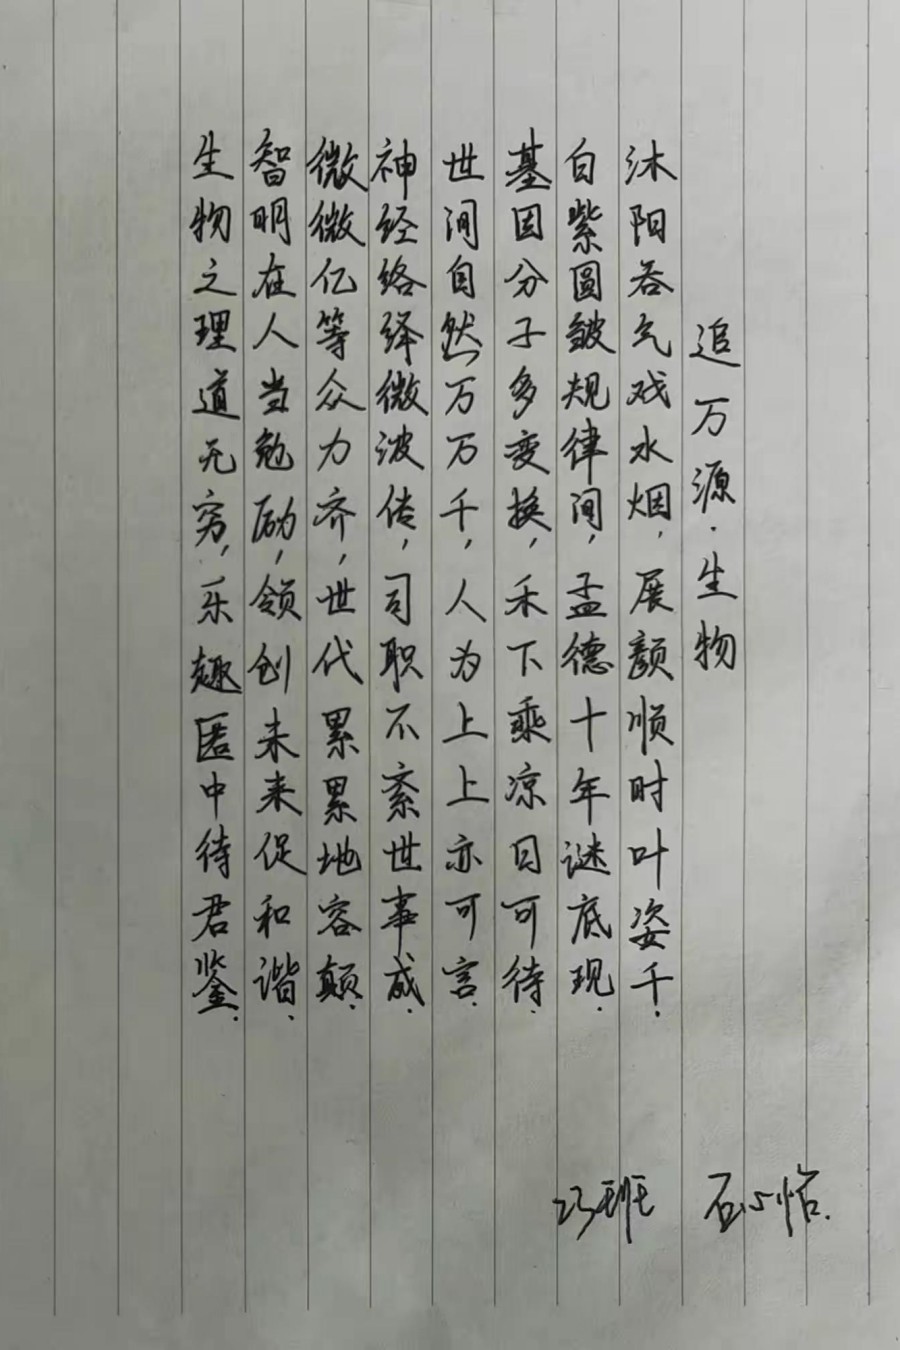 追万源·生物
沐阳吞气戏水烟，展颜顺时叶姿千．
白紫圆皱规律间，孟德十年谜底现．
基因分子多变换，禾下乘凉日可待．
世间自然万万千，人为上上亦可言．
神经络绎微波传，司职不紊世事成．
微微亿等众力齐，世代累累地容颠．
智明在人当勉励，领创未来促和谐．
生物之理道无穷，乐趣匿中待君鉴．
班 石心怡．